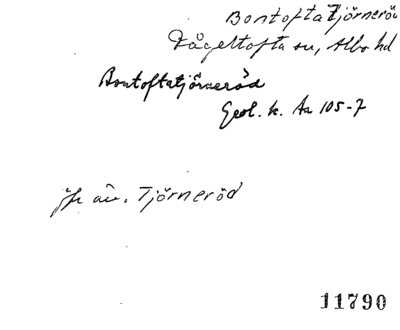 Bontofta Tjörneröd
Fågeltofta sn, Albo hd
Bontoftatjörneröd
Geol. k. Aa 105-7
jfr äv. Tjörneröd
11790